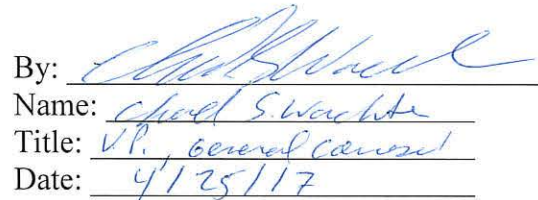 By:
Name: Chad S. Wachter
Title: V.P., General Counsel
Date: 4/25/17